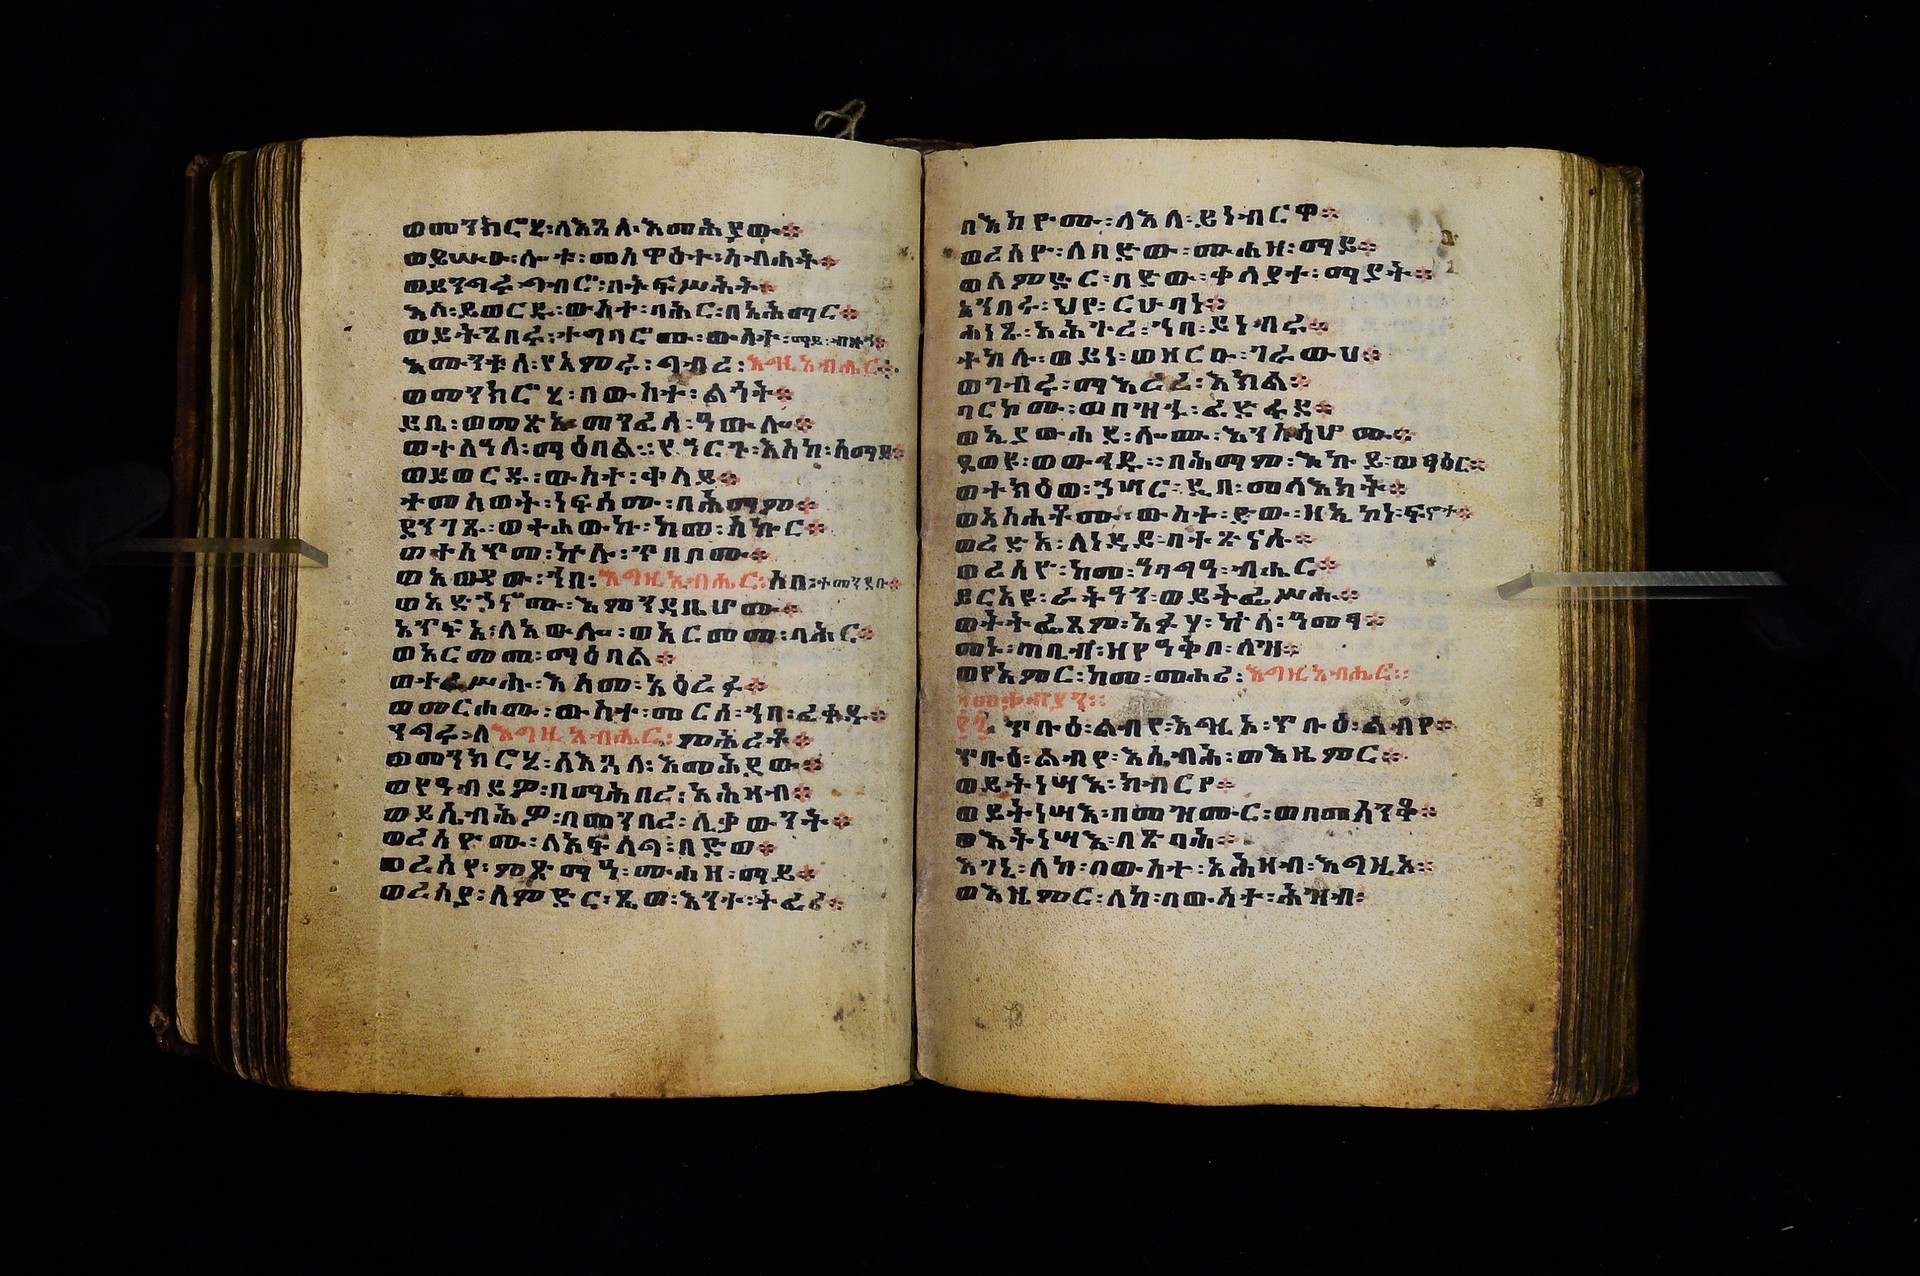 ወመንክሮሂ፡ለእጓለ፡እመሕያው።
ወይሡዑ፡ሎቱ፡መሥዋዕተ፡ስብሐት።
ወይንግሩ፡ግብሮ፡በትፍሥሕት።
እለ፡ይወርዱ፡ውስተ፡ባሕር፡በአሕማር።
ወይትጌበሩ፡ተግባሮሙ፡ውስተ፡ማይ፡ብዙኅ።
እሙንቱሰ፡የአምሩ፡ግብረ፡እግዚአብሔር።
ወመንክሮሂ፡በውስተ፡ልጓት።
ይቤ፡ወመጽአ፡መንፈሰ፡ዓውሎ።
ወተለዓለ፡ማዕበል።የዓርጉ፡እስከ፡ሰማይ።
ወይወርዱ፡ውስተ፡ቀላይ።
ተመስወት፡ነፍሶሙ፡በሕማም።
ደንገጹ፡ወተሐውኩ፡ከመ፡ስኩር።
ወተሰጥመ፡ኵሉ፡ጥበቦሙ።
ወአውየው፡ኀበ፡እግዚአብሔር፡ሶበ፡ተመንደቡ።
ወአድኃኖሙ፡እምንዳቤሆሙ።
አጥፍአ፡ለአውሎ፡ወአርመመ፡ባሕር።
ወአርመመ፡ማዕበል።
ወተፈሥሑ፡እስመ፡አዕረፉ።
ወመርሖሙ፡ውስተ፡መርሶ፡ኀበ፡ፈቀዱ።
ንግሩ፡ለእግዚአብሔር፡ምሕረቶ።
ወመንክሮሂ፡ለእጓለ፡እመሕያው።
ወየዓብይዎ፡በማሕበረ፡አሕዛብ።
ወይሴብሕዎ፡በመንበረ፡ሊቃውንት።
ወረሰዮሙ፡ለአፍላግ፡በድወ።
ወረሰየ፡ምጽማዓ፡ሙሐዘ፡ማይ።
ወረሰያ፡ለምድር፡ጼው፡እንተ፡ትፈሪ።
በእከዮሙ፡ለእለ፡ይነብርዋ።
ወረሰዮ፡ለበድው፡ሙሐዘ፡ማይ።
ወለምድር፡በድው፡ቀላያተ፡ማያት።
አንበረ፡ህየ፡ርኁባነ።
ሐነጹ፡አሕጉረ፡ኀበ፡ይነብሩ።
ተከሉ፡ወይነ፡ወዘርዑ፡ገራውህ።
ወገብሩ፡ማእረረ፡እክል።
ባርኮሙ፡ወበዝኁ፡ፈድፋደ።
ወኢያውሐደ፡ሎሙ፡እንስሳሆሙ።
ደወዩ፡ወውኅዱ።በሕማም፡እኩይ፡ወፃዕር።
ወተክዕወ፡ኃሣር፡ዲበ፡መላእክት።
ወአስሐቶሙ፡ውስተ፡ድው፡ዘኢኮነ፡ፍኖተ።
ወረድአ፡ለነዳይ፡በተጽናሱ።
ወረሰዮ፡ከመ፡ዓባግዓ፡ብሔር።
ይርአዩ፡ራትዓን፡ወይትፈሥሑ።
ወትትፈጸም፡አፉሃ፡ኵላ፡ዓመፃ።
መኑ፡ጠቢብ፡ዘየዓቅቦ፡ለዝ።
ወየአምር፡ከመ፡መሐሪ፡እግዚአብሔር።
ጥቡዕ፡ልብየ፡እግዚኦ፡ጥቡዕ፡ልብየ።
ጥቡዕ፡ልብየ፡እሴብሕ፡ወእዜምር።
ወይትነሣእ፡ክብርየ።
ወይትነሣእ፡በመዝሙር፡ወበመሰንቆ።
ወእትነሣእ፡በጽባሕ።
እገኒ፡ለከ፡በውስተ፡አሕዛብ፡እግዚኦ።
ወእዜምር፡ለከ፡በውስተ፡ሕዝብ፡